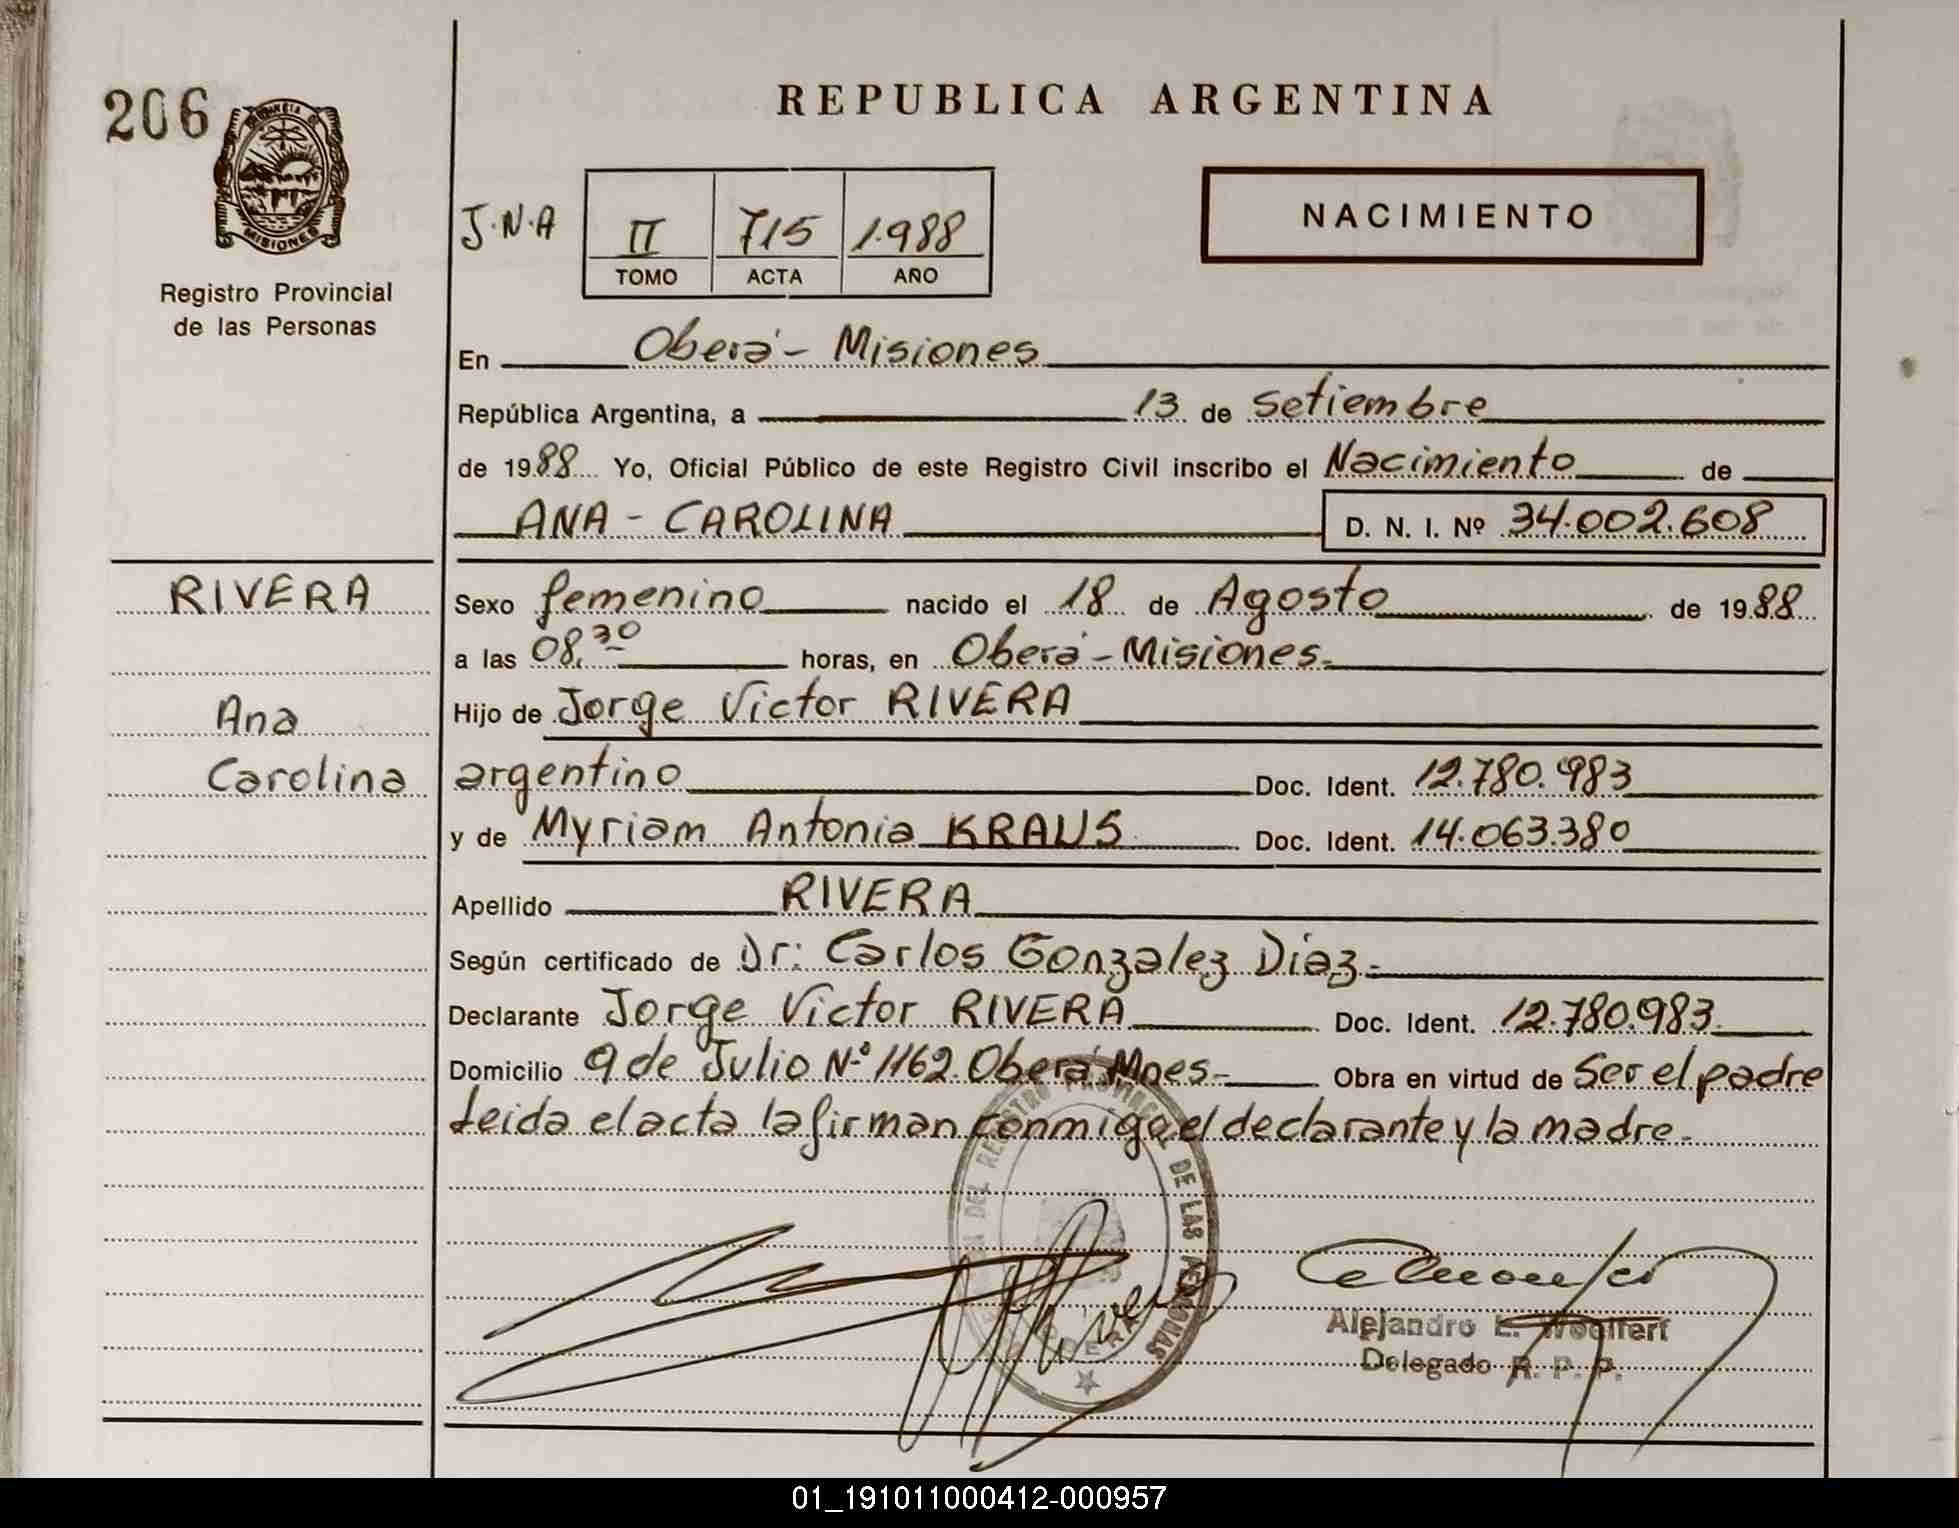 206
PROVINCIA DE
MISIONES
Registro Provincial
de las Personas
REPUBLICA ARGENTINA
J.N.A
II 715 1.988
TOMO ACTA AÑO
NACIMIENTO
En Oberá - Misiones
República Argentina, a 13 de Setiembre
de 1988 Yo, Oficial Público de este Registro Civil inscribo el Nacimiento de
ANA - CAROLINA D. N. I. Nº 34.002.608
RIVERA
Ana
Carolina
Sexo femenino nacido el 18 de Agosto de 1988
a las 08,30 horas, en Oberá - Misiones.
Hijo de Jorge Victor RIVERA
argentino Doc. Ident. 12.780.983
y de Myriam Antonia KRAUS Doc. Ident. 14.063.380
Apellido RIVERA
Según certificado de Dr: Carlos Gonzalez Diaz.
Declarante Jorge Victor RIVERA Doc. Ident. 12.780.983
Domicilio 9 de Julio Nº 1162 Oberá Mnes- Obra en virtud de Ser el padre
Leida el acta la firman conmigo el declarante y la madre.
DEL REGISTRO PROVINCIAL DE LAS PERSONAS
OBERA
Alejandro E.
Delegado R. P. P.
01_191011000412-000957